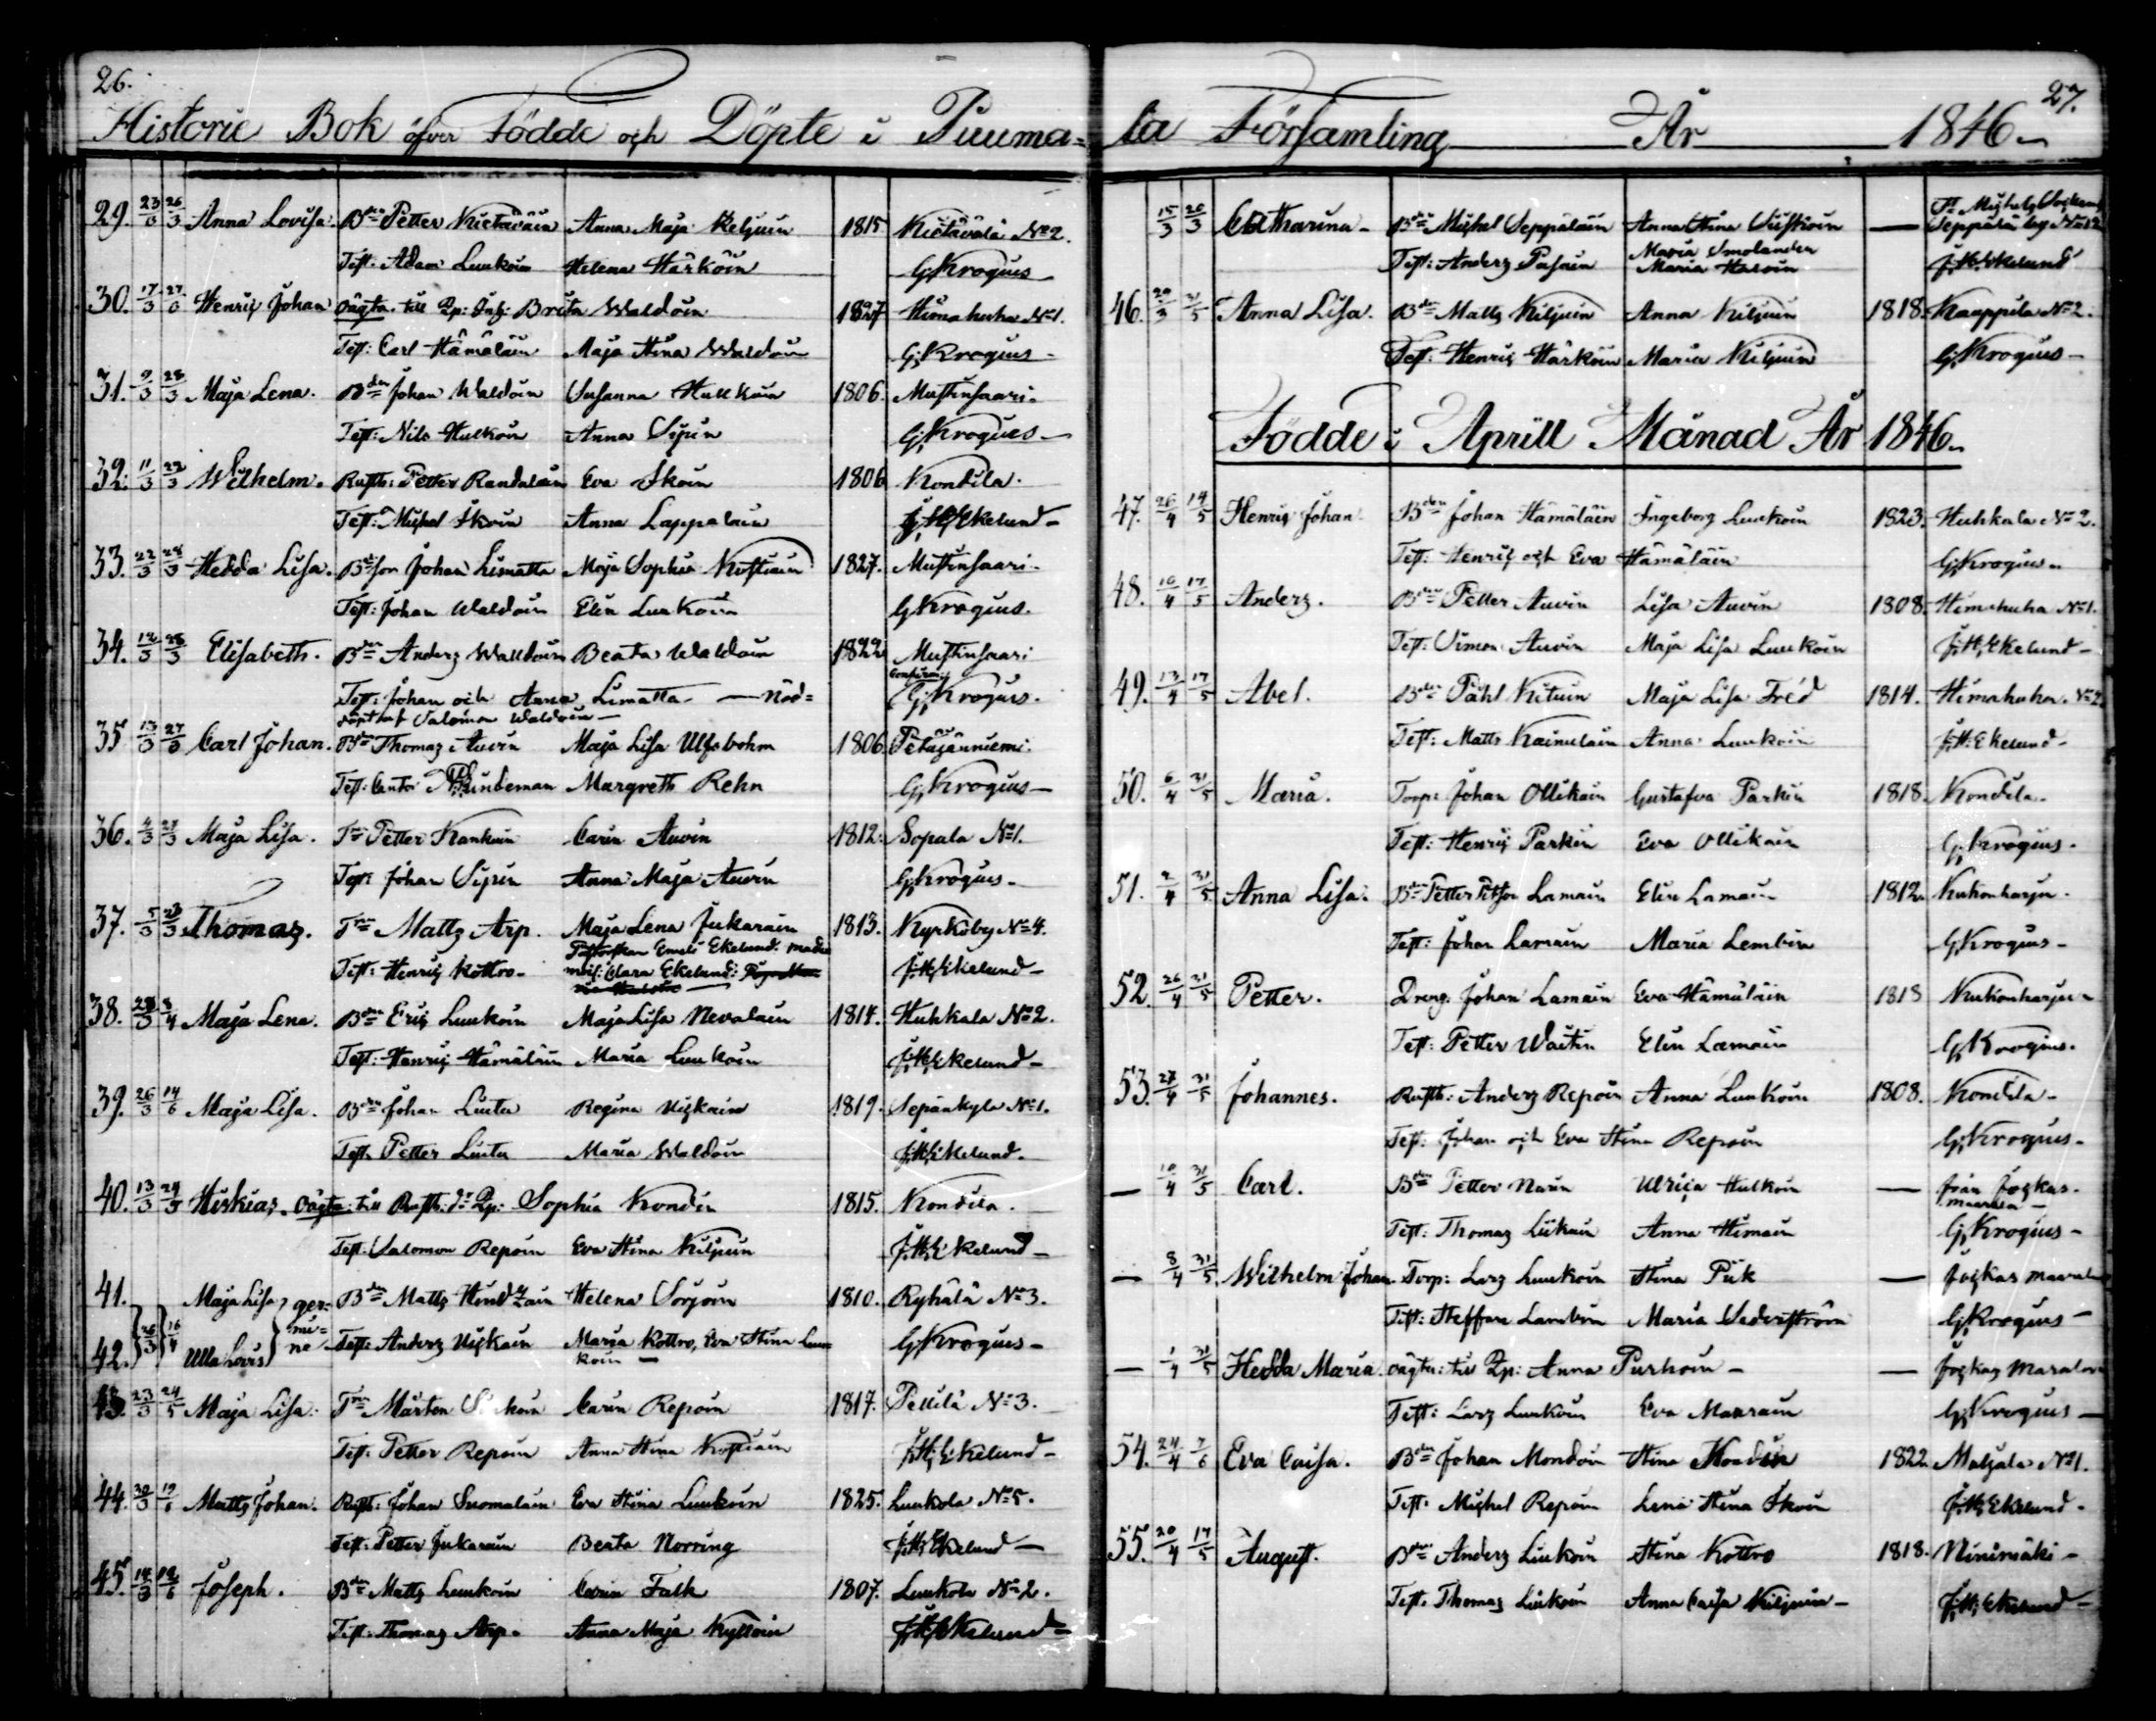 26.
Historie Bok öfver Födde och Döpte i Puuma=
29. 23/3 26/3 Anna Lovisa. Bden Petter Kietäväin Anna Maja Keljuin 1815 Kietävälä No 2.
Test. Adam Luukoin Helena Härköin G; Krogius
30. 17/3 27/3 Henric Johan oägta till Qp: Inh: Brita Waldoin 1827 Himahuha No 1.
Test: Carl Hämäläin Maja Stina Waldoin G; Krogius
31. 9/3 28/3 Maja Lena. Bden Johan Waldoin Susanna Hulkoin 1806. Mustinsaari.
Test: Nils Hulkoin Anna Sipin G; Krogius
32. 11/3 22/3 Wilhelm. Rusth: Petter Randalain Eva Ikoin 1806 Kondila.
Test: Michel Ikoin Anna Lappalain J; H; Ekelund
33. 22/3 28/3 Hedda Lisa. Bdeson Johan Limatta Maja Sophia Kostiain 1827. Mustinsaari.
Test: Johan Waldoin Elin Luukoin G Krogius.
34. 12/3 28/3 Elisabeth. Bden Anders Walldoin Beata Waldoin 1822 Mustinsaari
Test: Johan och Anna Limatta — Nöd= Confirm: G; Krogius.
döpt af Salomon Waldoin —
35 13/3 27/3 Carl Johan. Bden Thomas Auvin Maja Lisa Ulfsbohm 1806 Petäjänniemi.
Test: Cantor Lindeman Margreth Rehn G; Krogius
36. 4/3 23/3 Maja Lisa. Tre Petter Kankuin Carin Auvin 1812. Sopala No 1.
Test: Johan Sipin Anna Maja Auvin G; Krogius
37. 5/3 23/3 Thomas. Tre Matts Arp. Maja Lena Jukarain 1813. Kyrkoby No 4.
Pastorskan Emeli Ekelund: made
Test: Henric Kottro mois: Clara Ekelund: J: H; Ekelund
38. 28/3 3/4 Maja Lena. Bden Eric Luukoin Maja Lisa Nevalain 1814. Huhkala No 2.
Test: Henric Hämäläin Maria Luukoin J; H; Ekelund
39. 26/3 14/6 Maja Lisa. Bden Johan Liuta Regina Uiskain 1819. Sepänkylä No 1.
Test. Petter Liuta Maria Waldoin J; H; Ekelund.
40. 13/3 24/3 Hiskias. Oägta: till Rusth: dr Qp: Sophia Kondin 1815. Kondila.
Test: Salomon Repoin Eva Stina Kiljuin J: H; Ekelund
41. Maja Lisa ge= Bden Matts Helena Sorjoin 1810. Ryhälä No 3.
42. 26/3 16/4 Ulla Lovis mi= na Test: Anders Uiskain Maria Kottro, Eva Stina Luu G; Krogius
koin —
43. 23/3 24/5 Maja Lisa. Tre Mårten Carin Repoin 1817. Pellilä No 3.
Test. Petter Repoin Anna Stina Kostiain J; H; Ekelund
44. 30/3 Matts Johan. Rusth: Johan Suomalain Eva Stina Luukoin 1825. Luukola No 5.
Test. Petter Jukarain Beata Norring J; H; Ekelund
45. 14/3 Joseph. Bden Matts Luukoin Carin Falk 1807. Luukola No 2.
Test. Thomas Arp. Anna Maja Kylloin J; H; Ekelund
27.
la Församling År 1846.
15/3 26/3 Catharina Bden Michel Seppäläin Anna Stina — St. Michels Sockn
Maria Smolander Seppälä by
Test: Anders Pasain Maria J: H; Ekelund
46. 29/3 31/5 Anna Lisa. Bden Matts Kiljuin Anna Kiljuin 1818. Kauppila No 2.
Test: Henric Härköin Maria Kiljuin G; Krogius
Födde i Aprill Månad År 1846.
47. 26/4 14/5 Henric Johan Bden Johan Hämäläin Ingeborg Luukoin 1823. Huhkala No 2.
Test: Henric och Eva Hämäläin G; Krogius
48. 16/4 17/5 Anders. Bden Petter Auvin Lisa Auvin 1808. Himahuha No 1.
Test: Simon Auvin Maja Lisa Luukoin J; H; Ekelund
49. 13/4 17/5 Abel. Bden Påhl Kituin Maja Lisa Fréd 1814. Himahuha. No 2
Test: Matts Kainulain Anna Luukoin J: H: Ekelund
50. 6/4 31/5 Maria. Torp: Johan Ollikain Gustafva Parkin 1818. Kondila.
Test: Henric Parkin Eva Ollikain G; Krogius.
51. 2/4 31/5 Anna Lisa. Bden Petter Petson Lamain Elin Lamain 1812. Kukonharju.
Test: Johan Lamain Maria Lembin G; Krogius
52. 26/4 31/5 Petter. Dreng. Johan Lamain Eva Hämäläin 1818 Kukonharju
Test: Petter Waitin Elin Lamain G; Krogius.
53. 27/4 31/5 Johannes. Rusth: Anders Repoin Anna Luukoin 1808. Kondila
Test: Johan och Eva Stina Repoin G; Krogius
— 10/4 31/5 Carl. Bden Petter Narin Ulrica Hulkoin — från Jockas.
Test: Thomas Liikain Anna Himain G; Krogius
— 8/4 31/5 Wilhelm Johan. Torp: Lars Luukoin Stina Piik — Jockas
Test: Steffan Lambin Maria Sederström G; Krogius
— 1/4 31/5 Hedda Maria. oägta: till Qp: Anna Purhoin — Jockas
Test: Lars Luukoin Eva Manrain G; Krogius
54. 24/4 7/6 Eva Caisa. Bden Johan Mondoin Stina Kondin 1822 No 1.
Test. Michel Repoin Lena Stina Ikoin J; H; Ekelund
55. 20/4 17/5 August. Bden Anders Liukoin Stina Kottro 1818. Niinimäki
Test. Thomas Liukoin Anna Caisa Kiljuin J; H; Ekelund